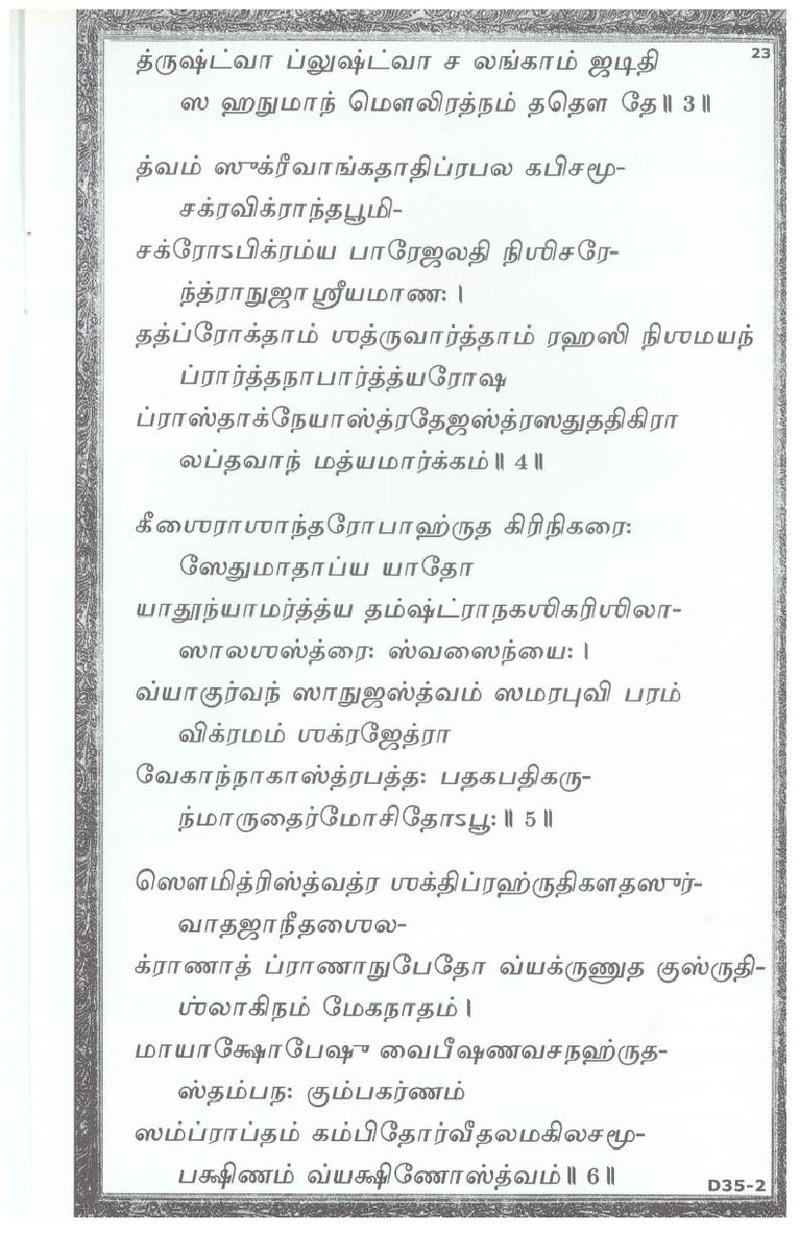 23
த்ருஷ்ட்வா ப்லுஷ்ட்வா ச லங்காம் ஜடிதி
ஸ ஹநுமாந் மௌலிரத்நம் ததௌ தே॥ 3॥
த்வம் ஸுக்ரீவாங்கதாதிப்ரபல கபிசமூ-
சக்ரவிக்ராந்தபூமி-
சக்ரோऽபிக்ரம்ய பாரேஜலதி நிஶிசரே-
ந்த்ராநுஜாஶ்ரீயமாண: ।
தத்ப்ரோக்தாம் ஶத்ருவார்த்தாம் ரஹஸி நிஶமயந்
ப்ரார்த்தநாபார்த்த்யரோஷ
ப்ராஸ்தாக்நேயாஸ்த்ரதேஜஸ்த்ரஸதுததிகிரா
லப்தவாந் மத்யமார்க்கம்॥ 4॥
கீஶைராஶாந்தரோபாஹ்ருத கிரிநிகரை:
ஸேதுமாதாப்ய யாதோ
யாதூந்யாமர்த்த்ய தம்ஷ்ட்ராநகஶிகரிஶிலா-
ஸாலஶஸ்த்ரை: ஸ்வஸைந்யை: ।
வ்யாகுர்வந் ஸாநுஜஸ்த்வம் ஸமரபுவி பரம்
விக்ரமம் ஶக்ரஜேத்ரா
வேகாந்நாகாஸ்த்ரபத்த: பதகபதிகரு-
ந்மாருதைர்மோசிதோऽபூ:॥ 5॥
ஸௌமித்ரிஸ்த்வத்ர ஶக்திப்ரஹ்ருதிகளதஸுர்-
வாதஜாநீதஶைல-
க்ராணாத் ப்ராணாநுபேதோ வ்யக்ருணுத குஸ்ருதி-
ஶ்லாகிநம் மேகநாதம்।
மாயாக்ஷோபேஷு வைபீஷணவசநஹ்ருத-
ஸ்தம்பந: கும்பகர்ணம்
ஸம்ப்ராப்தம் கம்பிதோர்வீதலமகிலசமூ-
பக்ஷிணம் வ்யக்ஷிணோஸ்த்வம்॥ 6॥
D35-2